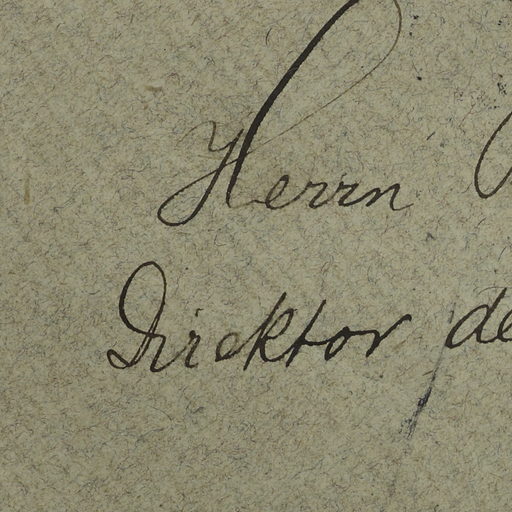 Herrn
Direktor de